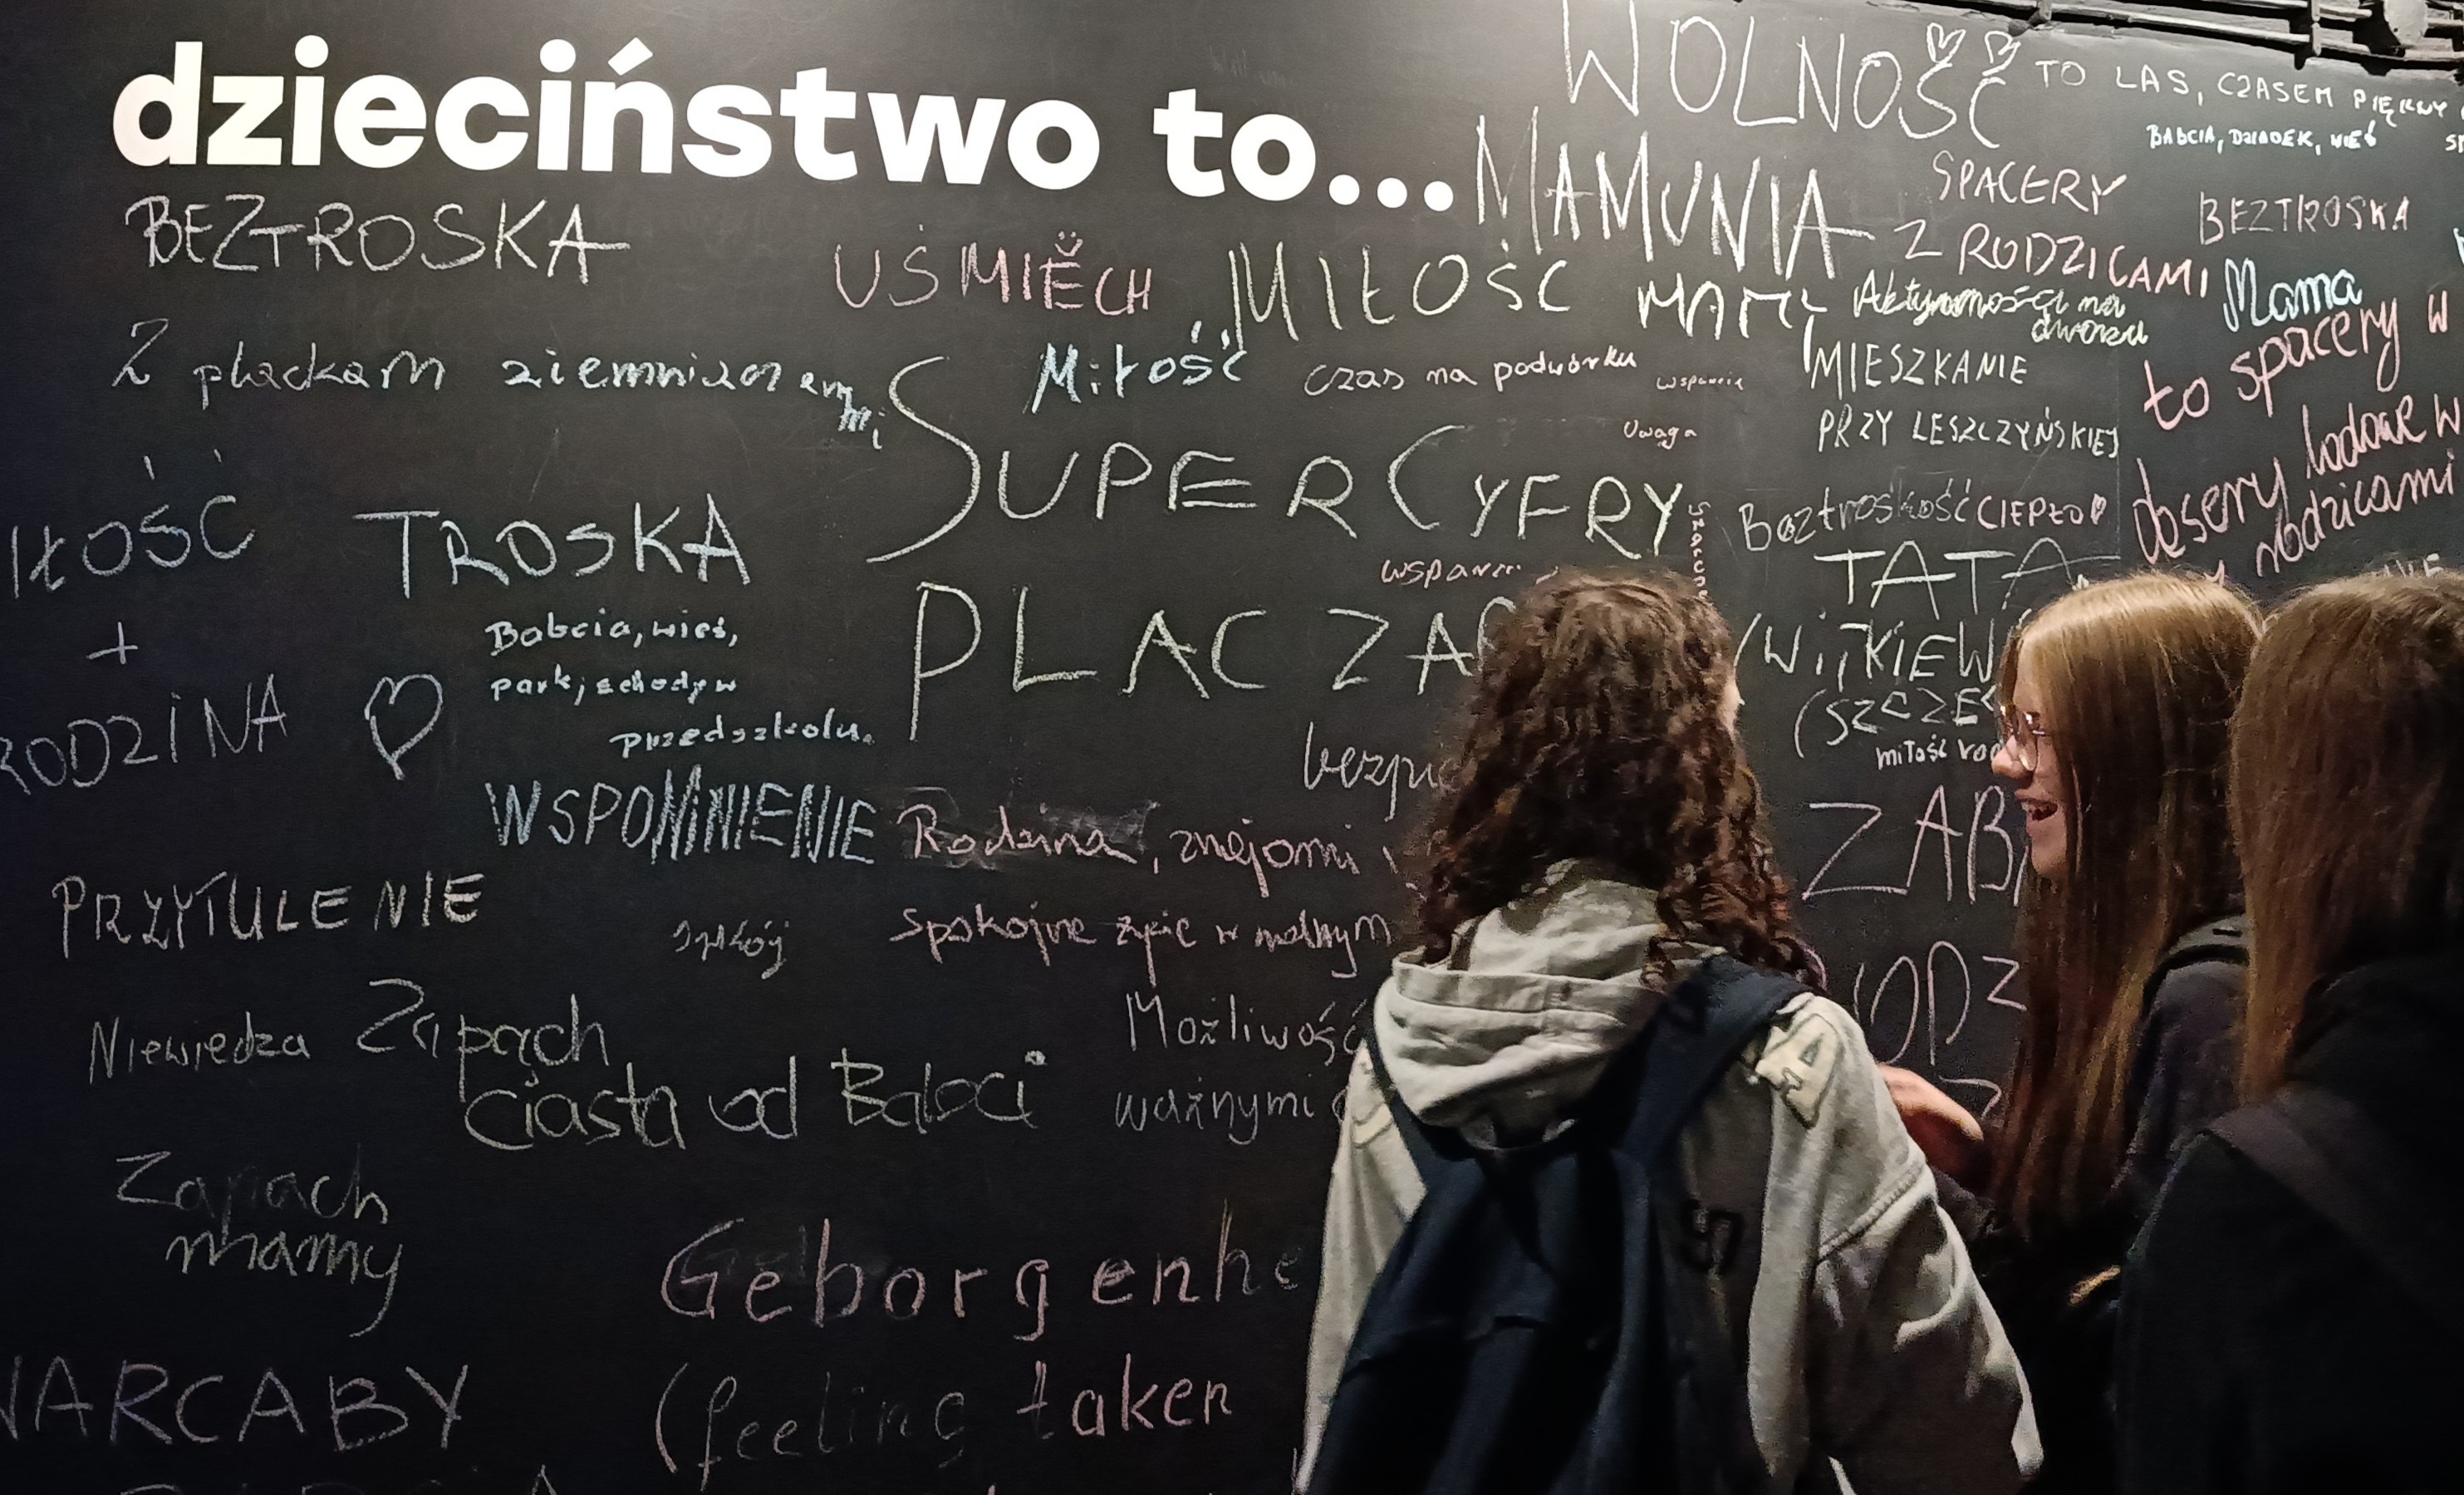 dzieciństwo to...
WOLNOŚĆ
TO LAS, CZASEM PIĘKNY
BABCIA, DZIADEK, WIEŚ
MAMUNIA
SPACERY
Z RODZICAMI
BEZTROSKA
BEZTROSKA
UŚMIĚCH
MIŁOŚĆ
Aktywności na
dworzu
Mama
to spacery w
Z plackam ziemniaczanymi
Miłość
czas na podwórku
wsparcie
MIESZKANIE
PRZY LESZCZYŃSKIEJ
Uwaga
SUPER CYFRY
desery lodowe w
rodzicami
Beztroskość
CIEPŁO
IŁOŚĆ
+
RODZINA
TROSKA
TATA
Babcia, wieś,
park, schody w
przedszkolu.
PLAC ZAB
WITKIEW
(SZCZĘ
miłość rod
bezpie
WSPOMNIENIE
Rodzina, znajomi
ZAB
PRZYTULENIE
spokój
Spokojne życie w
RODZ
Niewiedza
Zapach
ciasta od Babci
Możliwość
ważnymi
Zapach
mamy
Geborgenhe
(feeling taken
WARCABY